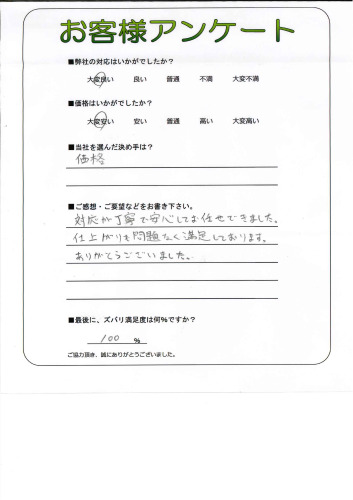 お客様アンケート
■弊社の対応はいかがでしたか？
大変良い 良い 普通 不満 大変不満
■価格はいかがでしたか？
大変安い 安い 普通 高い 大変高い
■当社を選んだ決め手は？
価格
■ご感想・ご要望などをお書き下さい。
対応が丁寧で安心してお任せできました。
仕上がりも問題なく満足しております。
ありがとうございました。
■最後に、ズバリ満足度は何%ですか？
100 %
ご協力頂き、誠にありがとうございました。